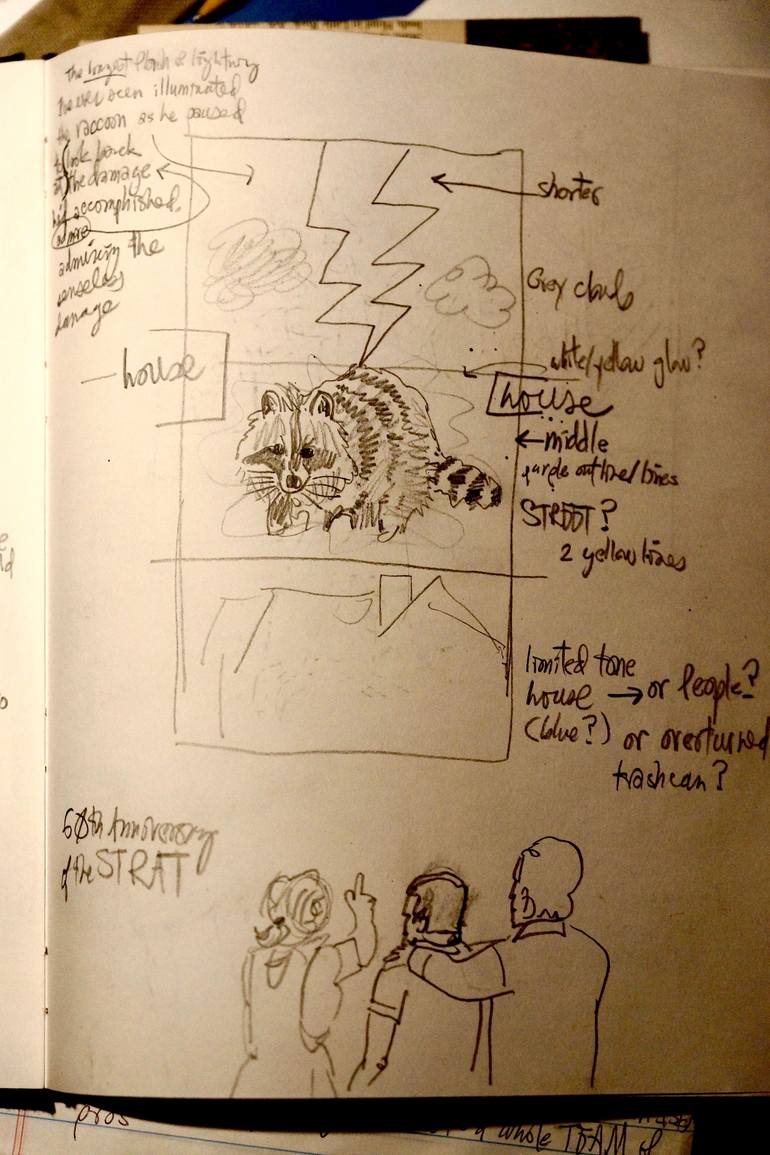 The largest flash of lightning
I've ever seen illuminated
the raccoon as he paused
to look back
at the damage
he'd accomplished.
admiring the
senseless
damage
shorter
Grey clouds
white/yellow glow?
house
house
middle
purple outline/lines
STREET?
2 yellow lines
limited tone
house → or People?
(blue?) or overturned
trashcan?
60th Anniversary
of the STRAT
pros
a whole TEAM of